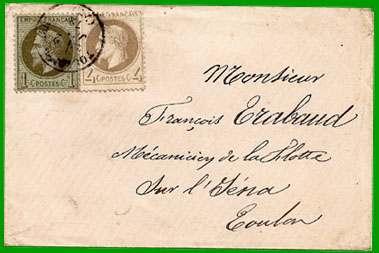 EMPIRE FRANÇAIS
1 C POSTES C 1
2 C POSTES C 2
Monsieur
François Erabaud
Mécanicien de la Flotte
Sur l'Iéna
Toulon